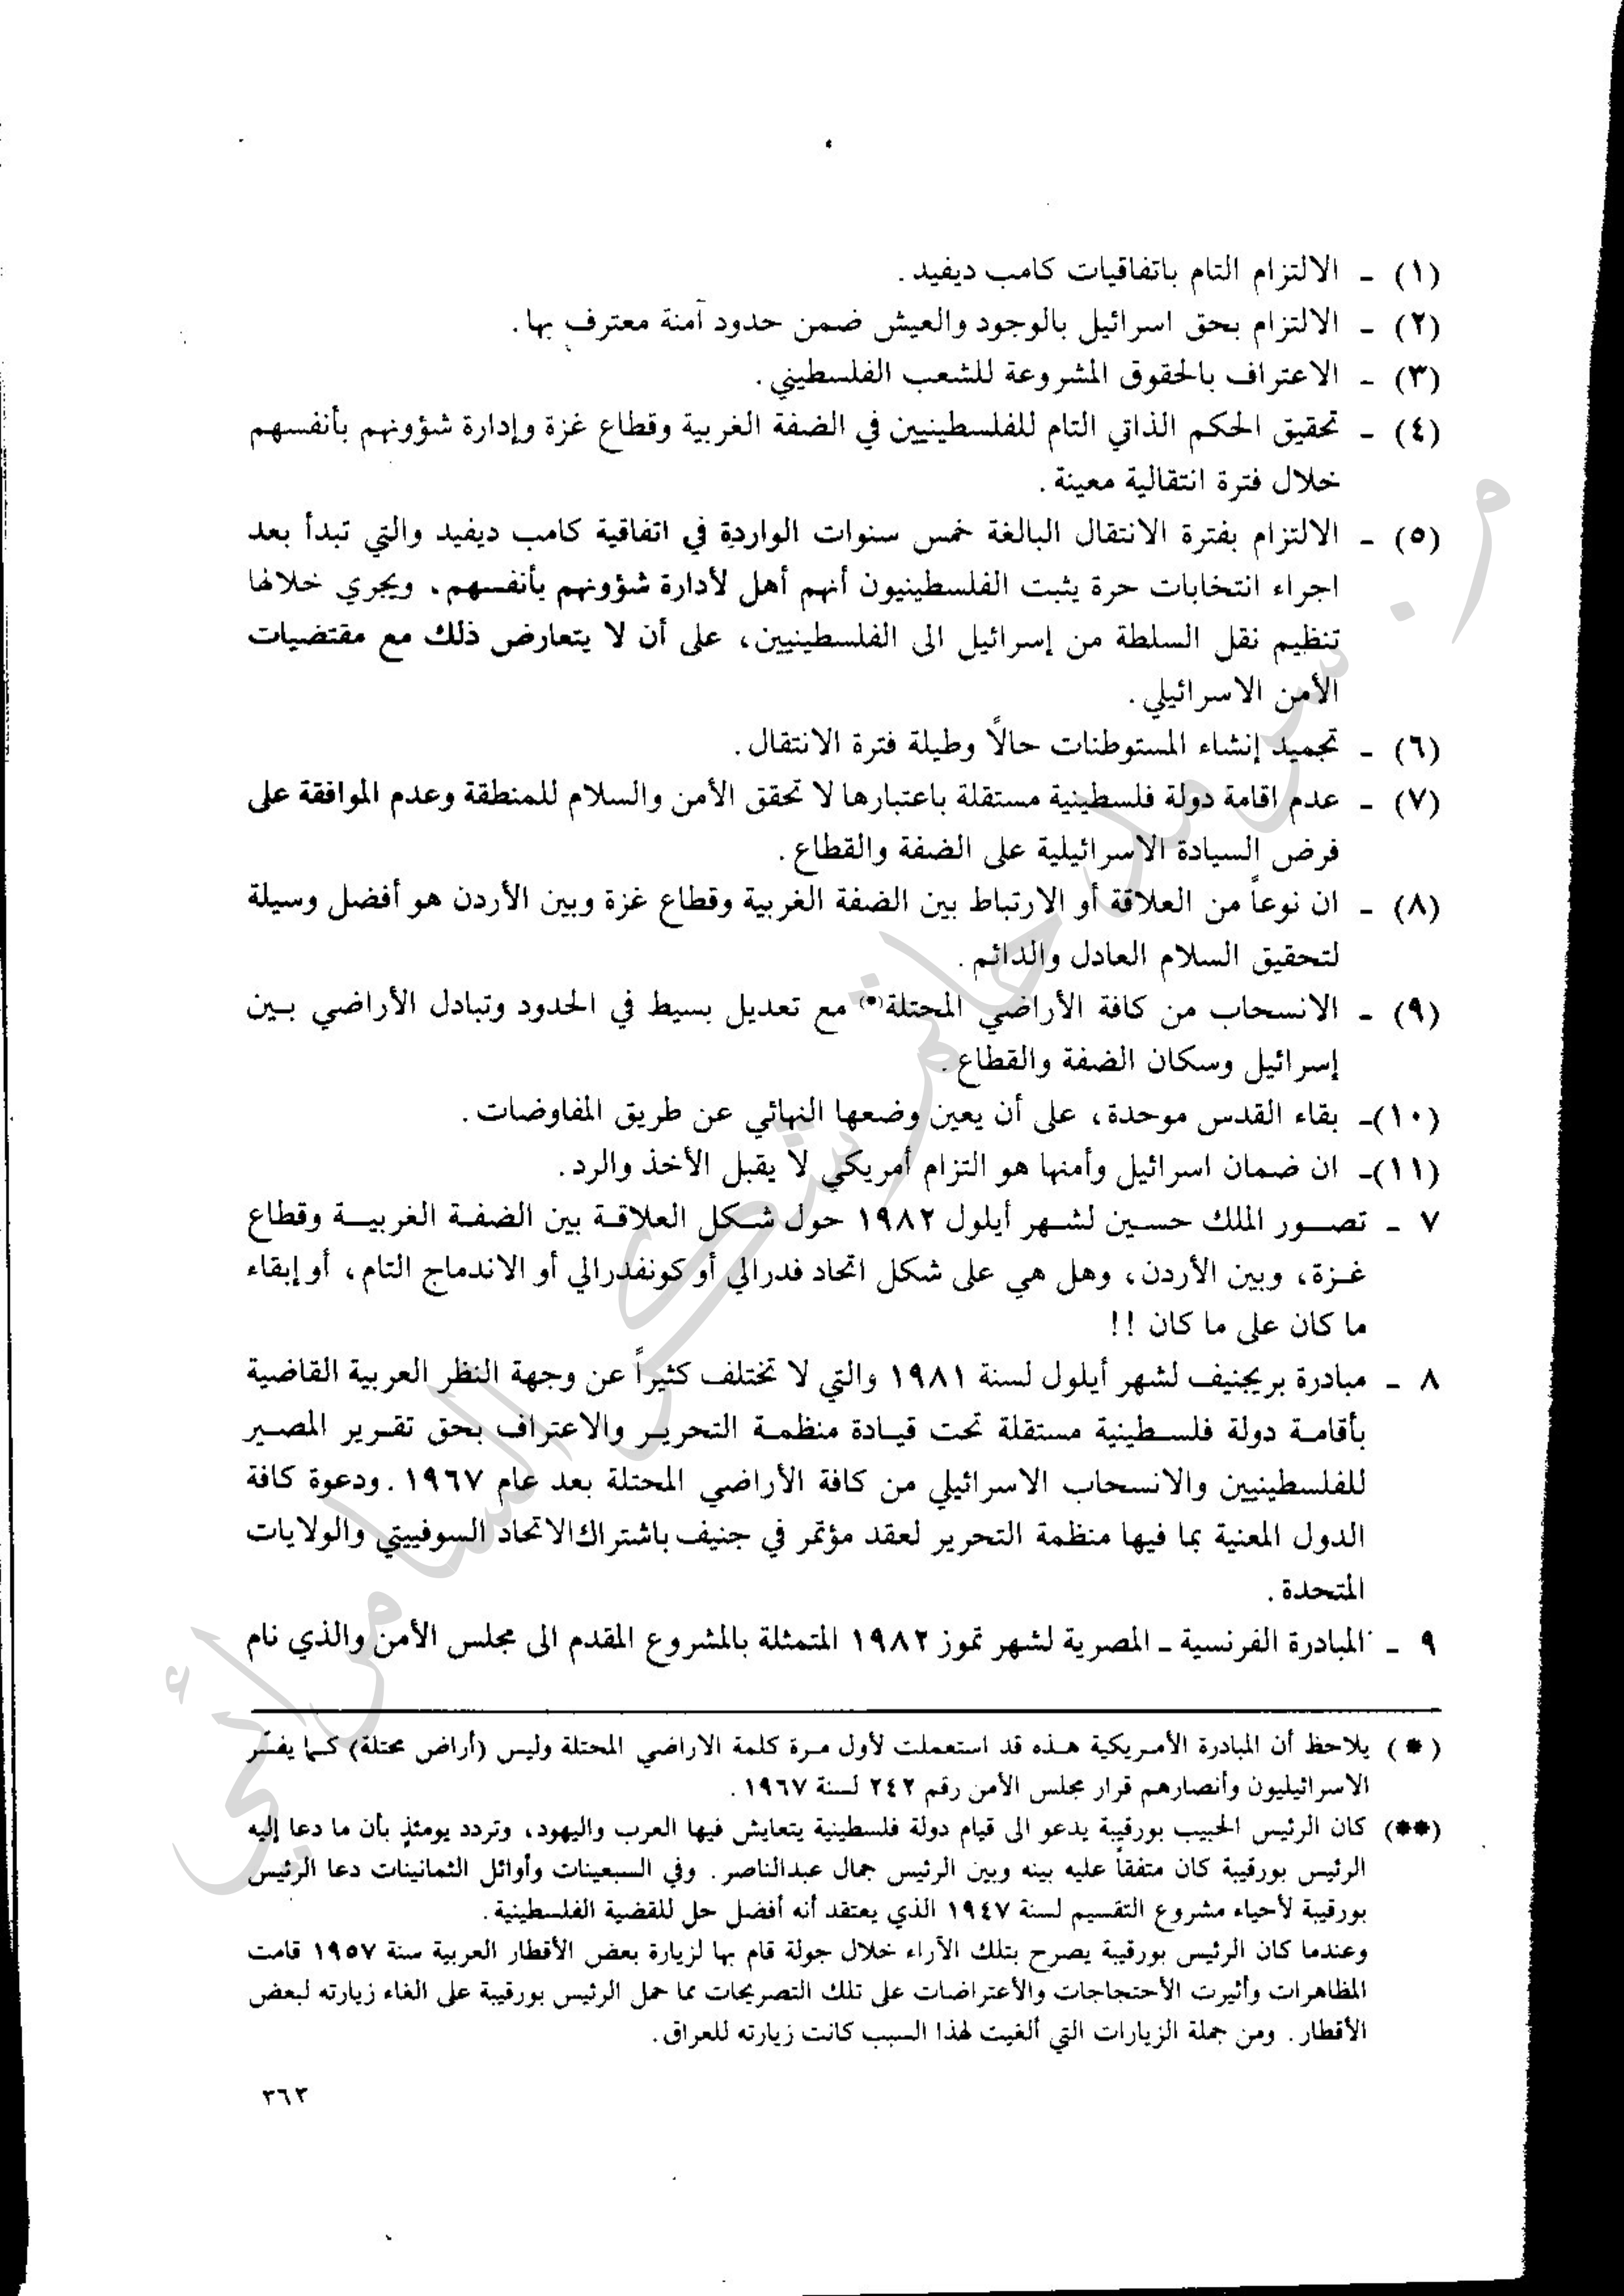 (١) - الالتزام التام باتفاقيات كامب ديفيد.
(٢) - الالتزام بحق اسرائيل بالوجود والعيش ضمن حدود آمنة معترف بها.
(٣) - الاعتراف بالحقوق المشروعة للشعب الفلسطيني.
(٤) - تحقيق الحكم الذاتي التام للفلسطينيين في الضفة الغربية وقطاع غزة وإدارة شؤونهم بأنفسهم
خلال فترة انتقالية معينة.
(٥) - الالتزام بفترة الانتقال البالغة خمس سنوات الواردة في اتفاقية كامب ديفيد والتي تبدأ بعد
اجراء انتخابات حرة يثبت الفلسطينيون أنهم أهل لأدارة شؤونهم بأنفسهم. ويجري خلالها
تنظيم نقل السلطة من إسرائيل الى الفلسطينيين، على أن لا يتعارض ذلك مع مقتضيات
الأمن الاسرائيلي.
(٦) - تجميد إنشاء المستوطنات حالاً وطيلة فترة الانتقال.
(٧) - عدم اقامة دولة فلسطينية مستقلة باعتبارها لا تحقق الأمن والسلام للمنطقة وعدم الموافقة على
فرض السيادة الاسرائيلية على الضفة والقطاع.
(٨) - ان نوعاً من العلاقة أو الارتباط بين الضفة الغربية وقطاع غزة وبين الأردن هو أفضل وسيلة
لتحقيق السلام العادل والدائم.
(٩) - الانسحاب من كافة الأراضي المحتلة(*) مع تعديل بسيط في الحدود وتبادل الأراضي بين
إسرائيل وسكان الضفة والقطاع.
(١٠)- بقاء القدس موحدة، على أن يعين وضعها النهائي عن طريق المفاوضات.
(١١)- ان ضمان اسرائيل وأمنها هو التزام أمريكي لا يقبل الأخذ والرد.
٧ - تصور الملك حسين لشهر أيلول ١٩٨٢ حول شكل العلاقة بين الضفة الغربية وقطاع
غزة، وبين الأردن، وهل هي على شكل اتحاد فدرالي أو كونفدرالي أو الاندماج التام، أو إبقاء
ما كان على ما كان !!
٨ - مبادرة بريجنيف لشهر أيلول لسنة ١٩٨١ والتي لا تختلف كثيراً عن وجهة النظر العربية القاضية
بأقامة دولة فلسطينية مستقلة تحت قيادة منظمة التحرير والاعتراف بحق تقرير المصير
للفلسطينيين والانسحاب الاسرائيلي من كافة الأراضي المحتلة بعد عام ١٩٦٧. ودعوة كافة
الدول المعنية بما فيها منظمة التحرير لعقد مؤتمر في جنيف باشتراك الاتحاد السوفييتي والولايات
المتحدة.
٩ - المبادرة الفرنسية - المصرية لشهر تموز ١٩٨٢ المتمثلة بالمشروع المقدم الى مجلس الأمن والذي نام
(*) يلاحظ أن المبادرة الأمريكية هذه قد استعملت لأول مرة كلمة الاراضي المحتلة وليس (أراض محتلة) كما يفسّر
الاسرائيليون وأنصارهم قرار مجلس الأمن رقم ٢٤٢ لسنة ١٩٦٧.
(**) كان الرئيس الحبيب بورقيبة يدعو الى قيام دولة فلسطينية يتعايش فيها العرب واليهود، وتردد يومئذٍ بأن ما دعا إليه
الرئيس بورقيبة كان متفقاً عليه بينه وبين الرئيس جمال عبدالناصر. وفي السبعينات وأوائل الثمانينات دعا الرئيس
بورقيبة لأحياء مشروع التقسيم لسنة ١٩٤٧ الذي يعتقد أنه أفضل حل للقضية الفلسطينية.
وعندما كان الرئيس بورقيبة يصرح بتلك الآراء خلال جولة قام بها لزيارة بعض الأقطار العربية سنة ١٩٥٧ قامت
المظاهرات وأثيرت الأحتجاجات والأعتراضات على تلك التصريحات مما حمل الرئيس بورقيبة على الغاء زيارته لبعض
الأقطار. ومن جملة الزيارات التي ألغيت لهذا السبب كانت زيارته للعراق.
٣٦٣
م. سرمد حاتم شكر السامرائي